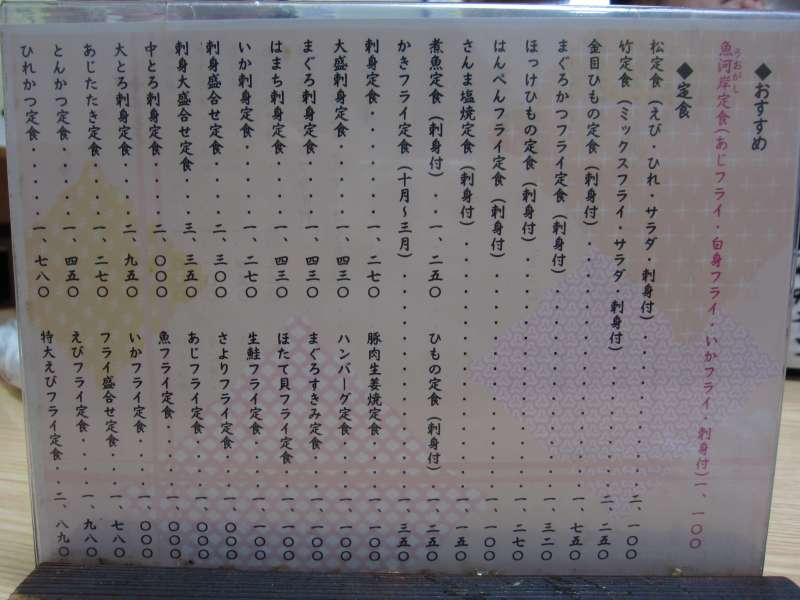 ◆おすすめ
うおがし
魚河岸定食(あじフライ・白身フライ・いかフライ・刺身付)一、一〇〇
◆定食
松定食(えび・ひれ・サラダ・刺身付)・・・・・二、一〇〇
竹定食(ミックスフライ・サラダ・刺身付)・・・・二、二五〇
金目ひもの定食(刺身付)・・・・・・・・一、七五〇
まぐろかつフライ定食(刺身付)・・・・・・・一、三二〇
ほっけひもの定食(刺身付)・・・・・・・・一、二七〇
はんぺんフライ定食(刺身付)・・・・・・・一、一〇〇
さんま塩焼定食(刺身付)・・・・・・・・一、一五〇
煮魚定食(刺身付)・・一、二五〇
ひもの定食(刺身付)・・一、二五〇
かきフライ定食(十月~三月)・・・・・・・一、三五〇
刺身定食・・・・・一、二七〇
豚肉生姜焼定食・・・一、〇〇〇
大盛刺身定食・・・・一、四三〇
ハンバーグ定食・・・一、〇〇〇
まぐろ刺身定食・・・一、四三〇
まぐろすきみ定食・・一、〇〇〇
はまち刺身定食・・・一、四三〇
ほたて貝フライ定食・一、〇〇〇
いか刺身定食・・・・一、二七〇
生鮭フライ定食・・・一、〇〇〇
刺身盛合せ定食・・・二、三〇〇
さよりフライ定食・・一、〇〇〇
刺身大盛合せ定食・・三、三五〇
あじフライ定食・・・一、〇〇〇
中とろ刺身定食・・・二、〇〇〇
魚フライ定食・・・・一、〇〇〇
大とろ刺身定食・・・二、九五〇
いかフライ定食・・・一、〇〇〇
あじたたき定食・・・一、二七〇
フライ盛合せ定食・・一、七八〇
とんかつ定食・・・・一、四五〇
えびフライ定食・・・一、九八〇
ひれかつ定食・・・・一、七八〇
特大えびフライ定食・・二、八九〇